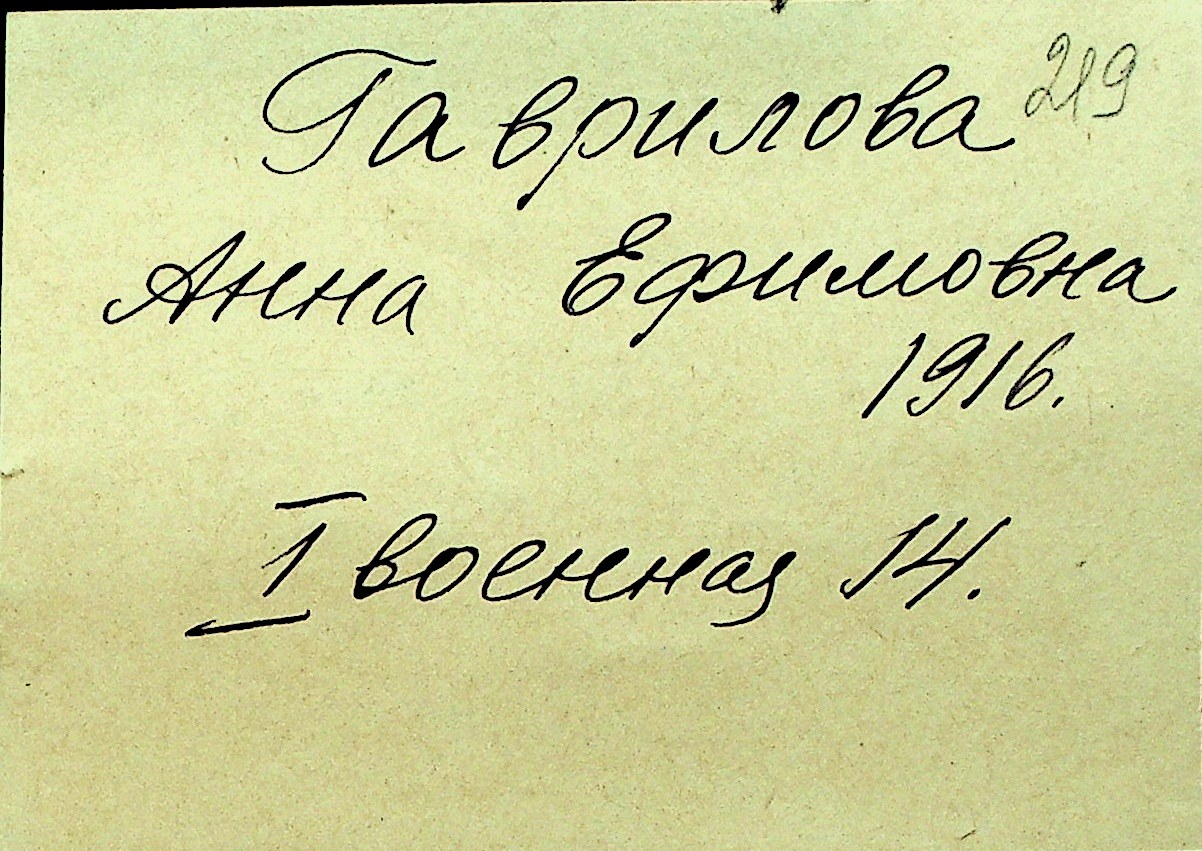 Гаврилова 219
Анна Ефимовна
1916.
I военная 14.